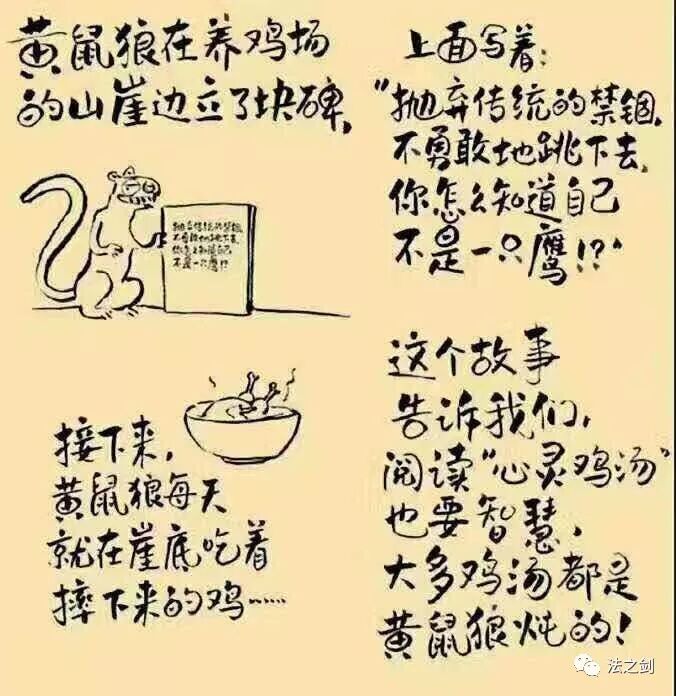 黄鼠狼在养鸡场
的山崖边立了块碑,
上面写着:
"抛弃传统的禁锢,
不勇敢地跳下去,
你怎么知道自己
不是一只鹰!?"
抛弃传统的禁锢
不勇敢地跳下去,
你怎么知道自己
不是一只鹰!?
接下来,
黄鼠狼每天
就在崖底吃着
摔下来的鸡……
这个故事
告诉我们,
阅读"心灵鸡汤"
也要智慧,
大多鸡汤都是
黄鼠狼炖的!
法之剑